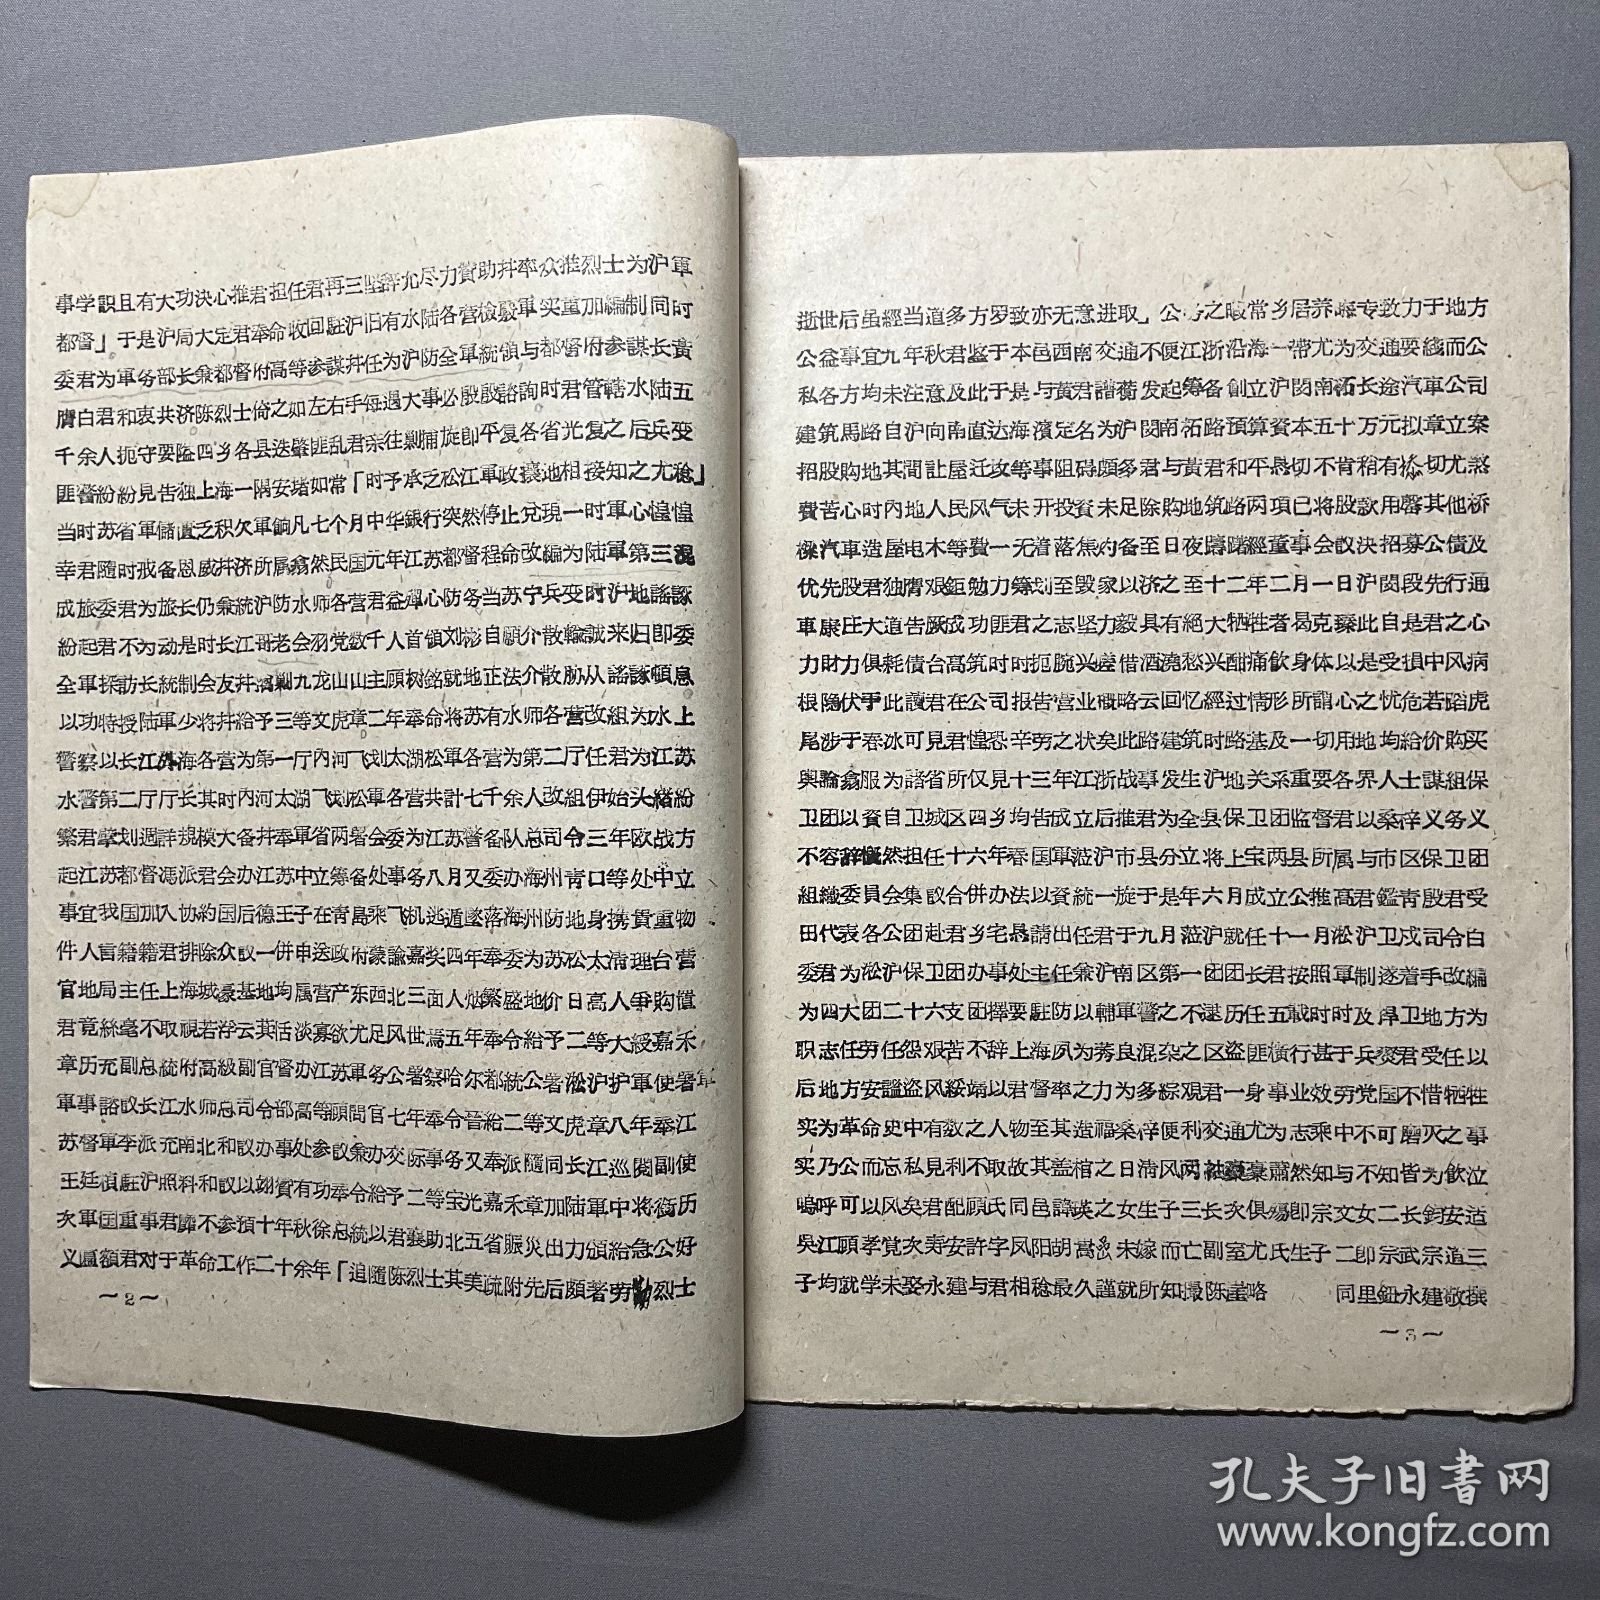 事学識且有大功决心推君担任君再三坚辞允尽力贊助并率众推烈士为沪軍
都督」于是沪局大定君奉命收回駐沪旧有水陆各营檢嚴軍实重加編制同时
委君为軍务部长兼都督府高等参謀并任为沪防全軍統領与都督府参謀长黃
膺白君和衷共济陈烈士倚之如左右手每遇大事必殷殷諮詢时君管轄水陆五
千余人扼守要隘四乡各县迭肇匪乱君亲往剿捕旋即平复各省光复之后兵变
匪警紛紛見告独上海一隅安堵如常「时予承乏松江軍政壤地相接知之尤稔」
当时苏省軍儲匱乏积欠軍餉凡七个月中华銀行突然停止兑現一时軍心惶惶
幸君随时戒备恩威并济所属翕然民国元年江苏都督程命改編为陆軍第三混
成旅委君为旅长仍兼統沪防水师各营君益殫心防务当苏宁兵变时沪地謠諑
紛起君不为动是时长江哥老会羽党数千人首領刘彬自願介散輸誠来归即委
全軍探訪长統制会友并 剿九龙山山主顾树銘就地正法介散胁从謠諑頓息
以功特授陆軍少将并給予三等文虎章二年奉命将苏有水师各营改組为水上
警察以长江外海各营为第一厅內河飞划太湖松軍各营为第二厅任君为江苏
水警第二厅厅长其时內河太湖飞划松軍各营共計七千余人改組伊始头緖紛
繁君擘划週詳規模大备并奉軍省两署会委为江苏警备队总司令三年欧战方
起江苏都督馮派君会办江苏中立筹备处事务八月又委办海州靑口等处中立
事宜我国加入协約国后德王子在靑島乘飞机逃遁墜落海州防地身携貴重物
件人言籍籍君排除众議一併申送政府蒙諭嘉奖四年奉委为苏松太清理台营
官地局主任上海城濠基地均属营产东西北三面人烟繁盛地价日高人爭购置
君竟絲毫不取視若浮云其恬淡寡欲尤足风世焉五年奉令給予二等大綬嘉禾
章历充副总統府高級副官督办江苏軍务公署察哈尔都統公署淞沪护軍使署軍
軍事諮議长江水师总司令部高等顧問官七年奉令晉給二等文虎章八年奉江
苏督軍李派充南北和議办事处参議兼办交际事务又奉派随同长江巡閱副使
王廷楨駐沪照料和議以翊贊有功奉令給予二等宝光嘉禾章加陆軍中将銜历
次軍国重事君靡不参預十年秋徐总統以君襄助北五省賑災出力頒給急公好
义匾額君对于革命工作二十余年「追随陈烈士其美疏附先后頗著劳勩烈士
～2～
逝世后虽經当道多方罗致亦无意进取」公务之暇常乡居养疴专致力于地方
公益事宜九年秋君鉴于本邑西南交通不便江浙沿海一带尤为交通要綫而公
私各方均未注意及此于是与黃君譜蘅发起筹备創立沪閔南柘长途汽車公司
建筑馬路自沪向南直达海濱定名为沪閔南柘路預算資本五十万元拟章立案
招股购地其間訌屋迁坟等事阻碍頗多君与黃君和平恳切不肯稍有 切尤煞
費苦心时內地人民风气未开投資未足除购地筑路两項已将股款用罄其他桥
樑汽車造屋电木等費一无着落焦灼备至日夜躊躇經董事会議决招募公債及
优先股君独膺艰鉅勉力筹划至毁家以济之至十二年二月一日沪閔段先行通
車康庄大道告厥成功匪君之志坚力毅具有絕大牺牲者曷克臻此自是君之心
力財力俱耗債台高筑时时扼腕兴嗟借酒澆愁兴酣痛飲身体以是受損中风病
根隐伏于此讀君在公司报告营业概略云回忆經过情形所謂心之忧危若蹈虎
尾涉于春冰可見君惶恐辛劳之状矣此路建筑时路基及一切用地均給价购买
輿論翕服为諸省所仅見十三年江浙战事发生沪地关系重要各界人士謀組保
卫团以資自卫城区四乡均告成立后推君为全县保卫团监督君以桑梓义务义
不容辞慨然担任十六年春国軍蒞沪市县分立将上宝两县所属与市区保卫团
組織委員会集議合併办法以資統一旋于是年六月成立公推高君鑑靑殷君受
田代表各公团赴君乡宅恳請出任君于九月蒞沪就任十一月淞沪卫戍司令白
委君为淞沪保卫团办事处主任兼沪南区第一团团长君按照軍制逐着手改編
为四大团二十六支团擇要駐防以輔軍警之不逮历任五载时时及捍卫地方为
职志任劳任怨艰苦不辞上海夙为莠良混杂之区盜匪横行甚于兵燹君受任以
后地方安謐盜风綏靖以君督率之力为多綜观君一身事业效劳党国不惜牺牲
实为革命史中有数之人物至其造福桑梓便利交通尤为志乘中不可磨灭之事
实乃公而忘私見利不取故其盖棺之日清风两袖 橐蕭然知与不知皆为飮泣
嗚呼可以风矣君配顧氏同邑諱瑛之女生子三长次俱殤卽宗文女二长鈞安适
吳江顧孝覚次寿安許字凤阳胡嵩 未嫁而亡副室尤氏生子二卽宗武宗道三
子均就学未娶永建与君相稔最久謹就所知撮陈崖略　　同里鈕永建敬撰
～3～
孔夫子旧書网
www.kongfz.com